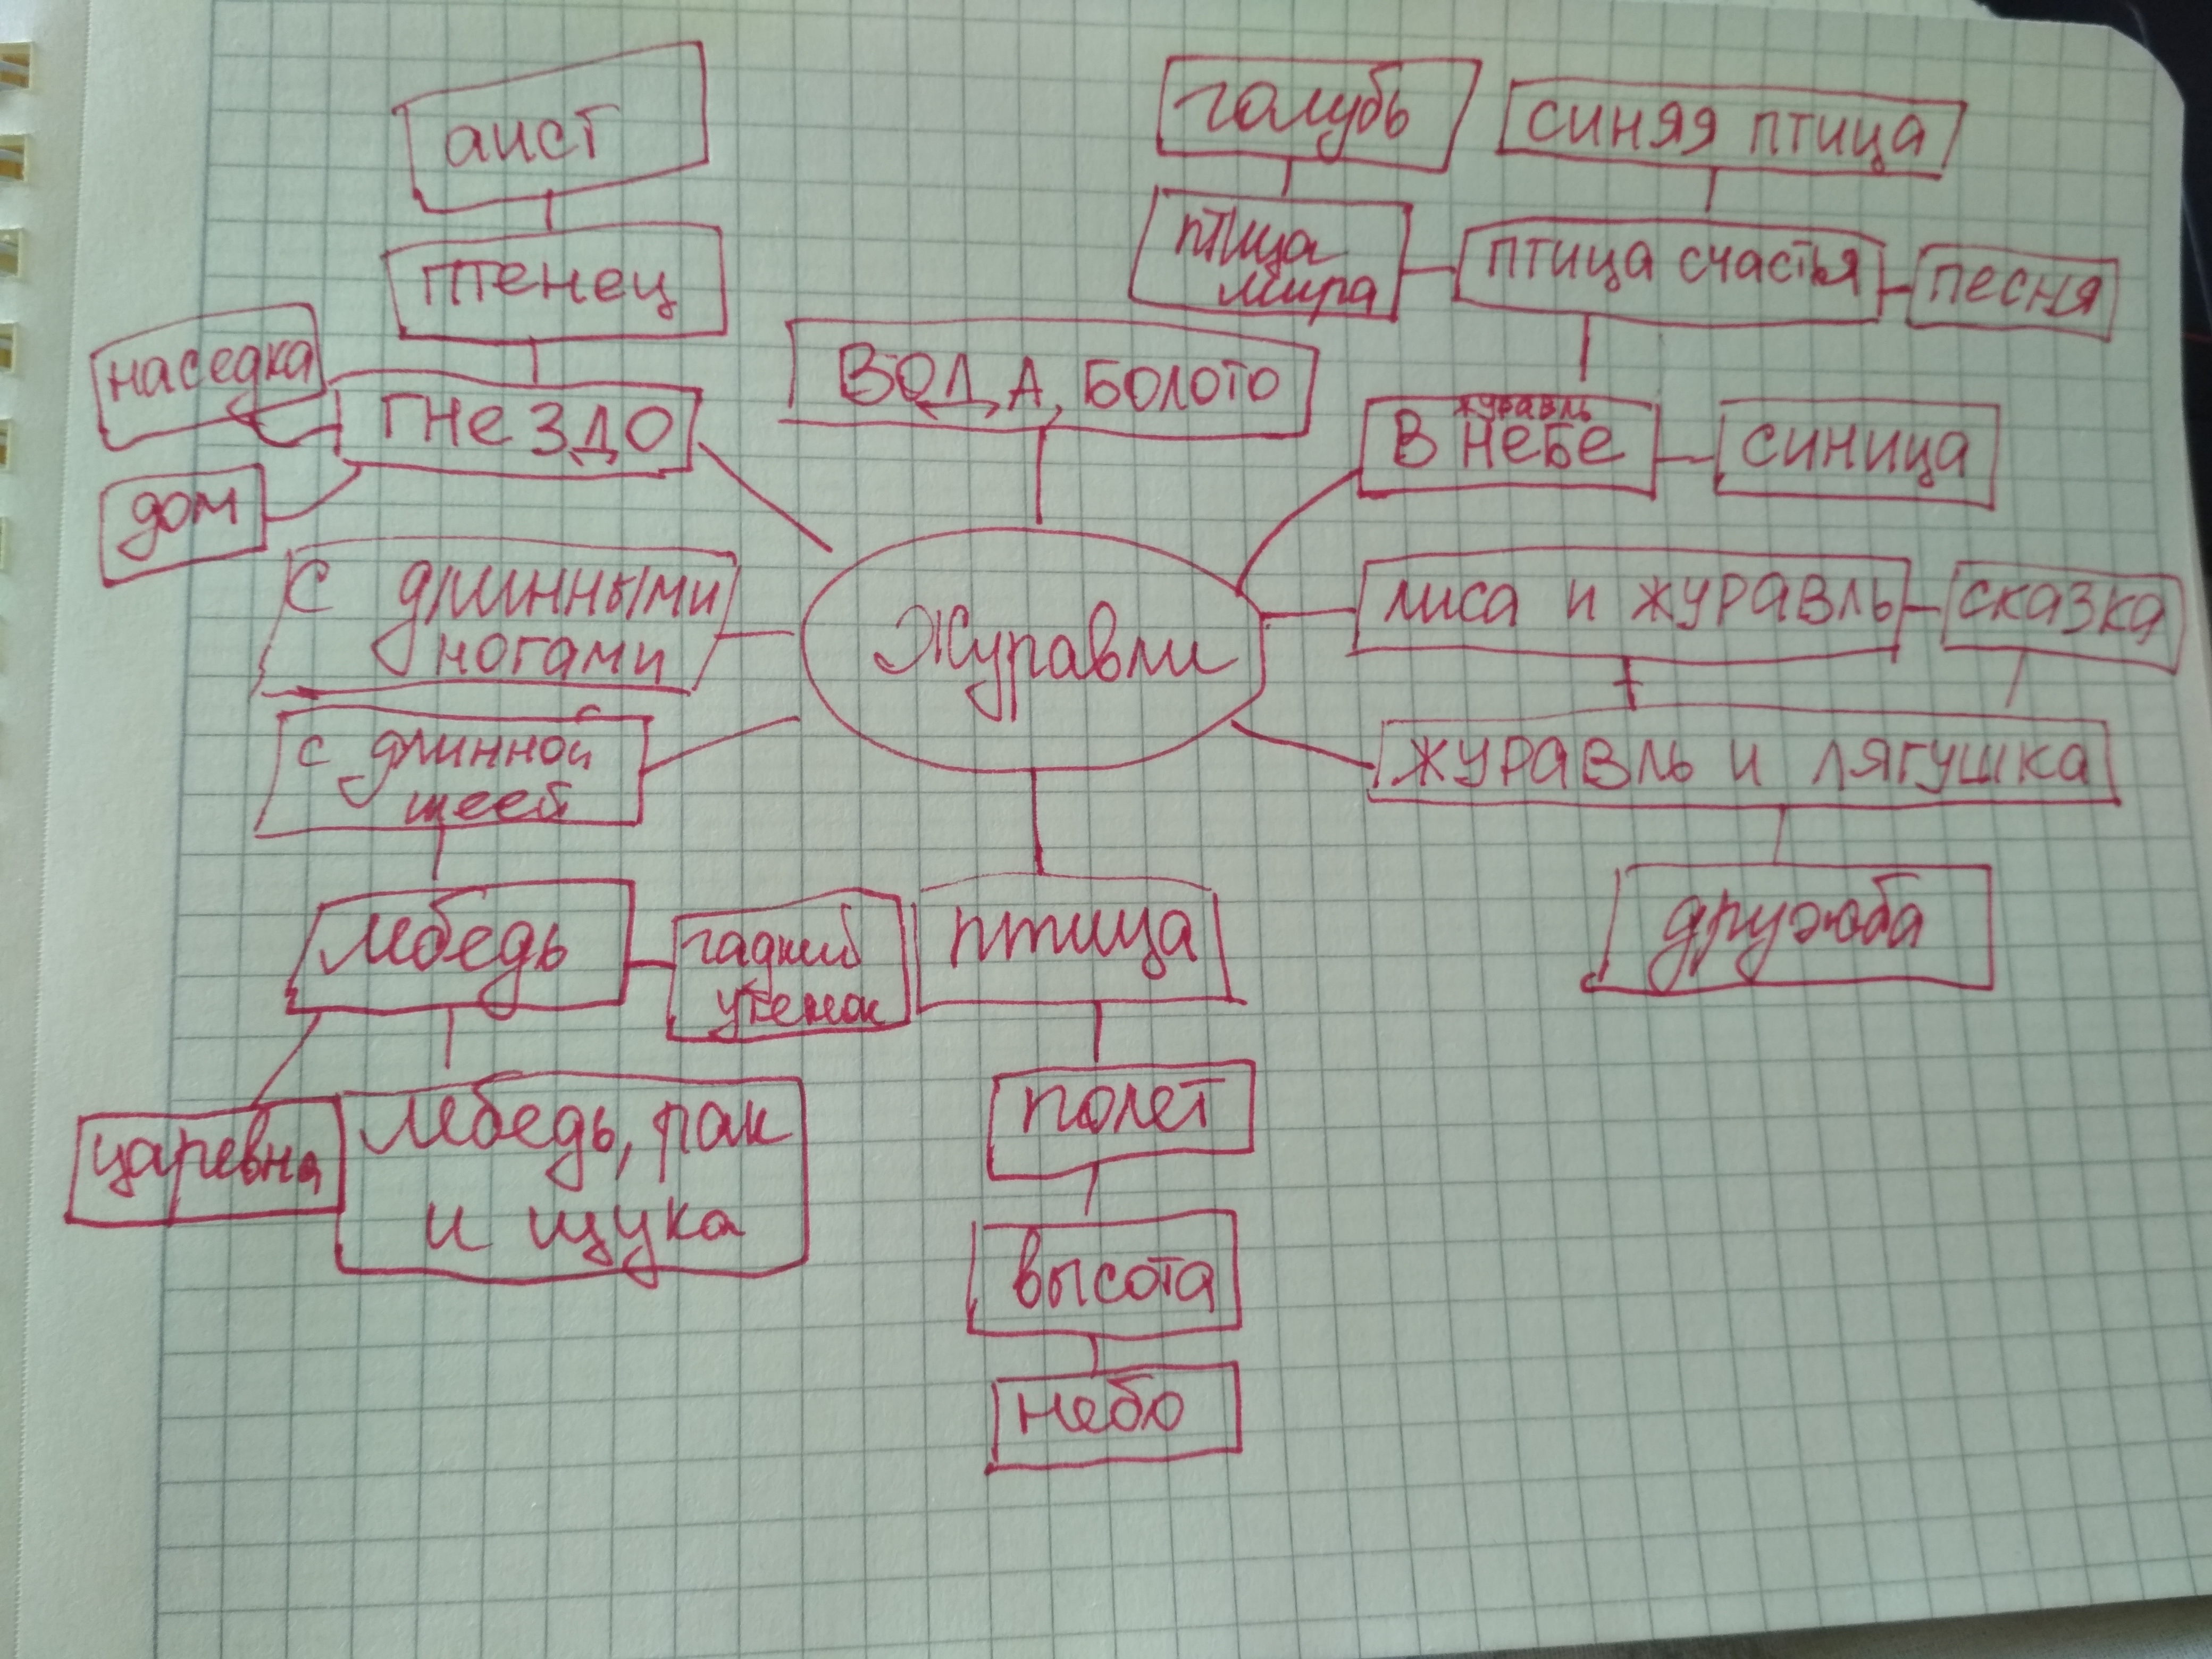 аист
голубь
синяя птица
птенец
птица
мира
птица счастья
песня
наседка
гнездо
ВОДА, БОЛОТО
журавль
в небе
синица
дом
с длинными
ногами
Журавли
лиса и журавль
сказка
с длинной
шеей
журавль и лягушка
лебедь
гадкий
утенок
птица
дружба
царевна
лебедь, рак
и щука
полет
высота
небо